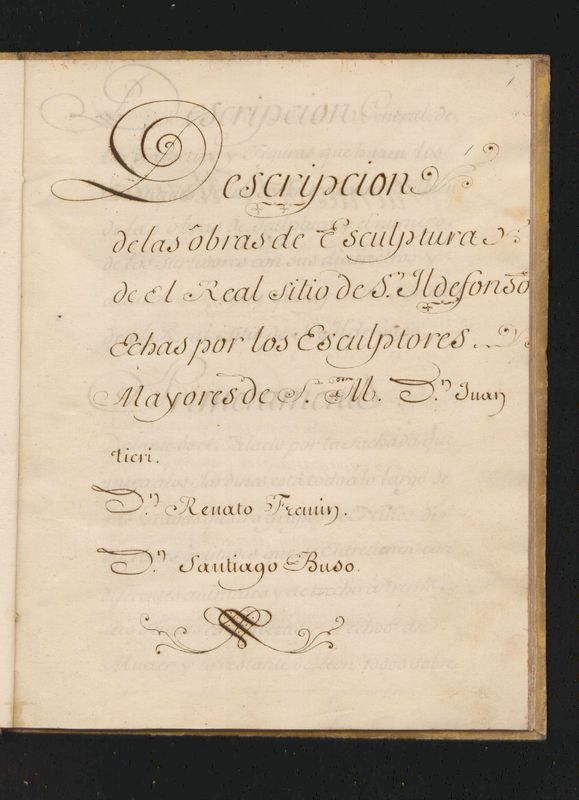 Descripcion
de las obras de Esculptura
de El Real Sitio de S.n Ildefonso
Echas por los Esculptores
Mayores de S. M. D.n Juan
tieri.
D.n Renato Fremin.
D.n Santiago Buso.